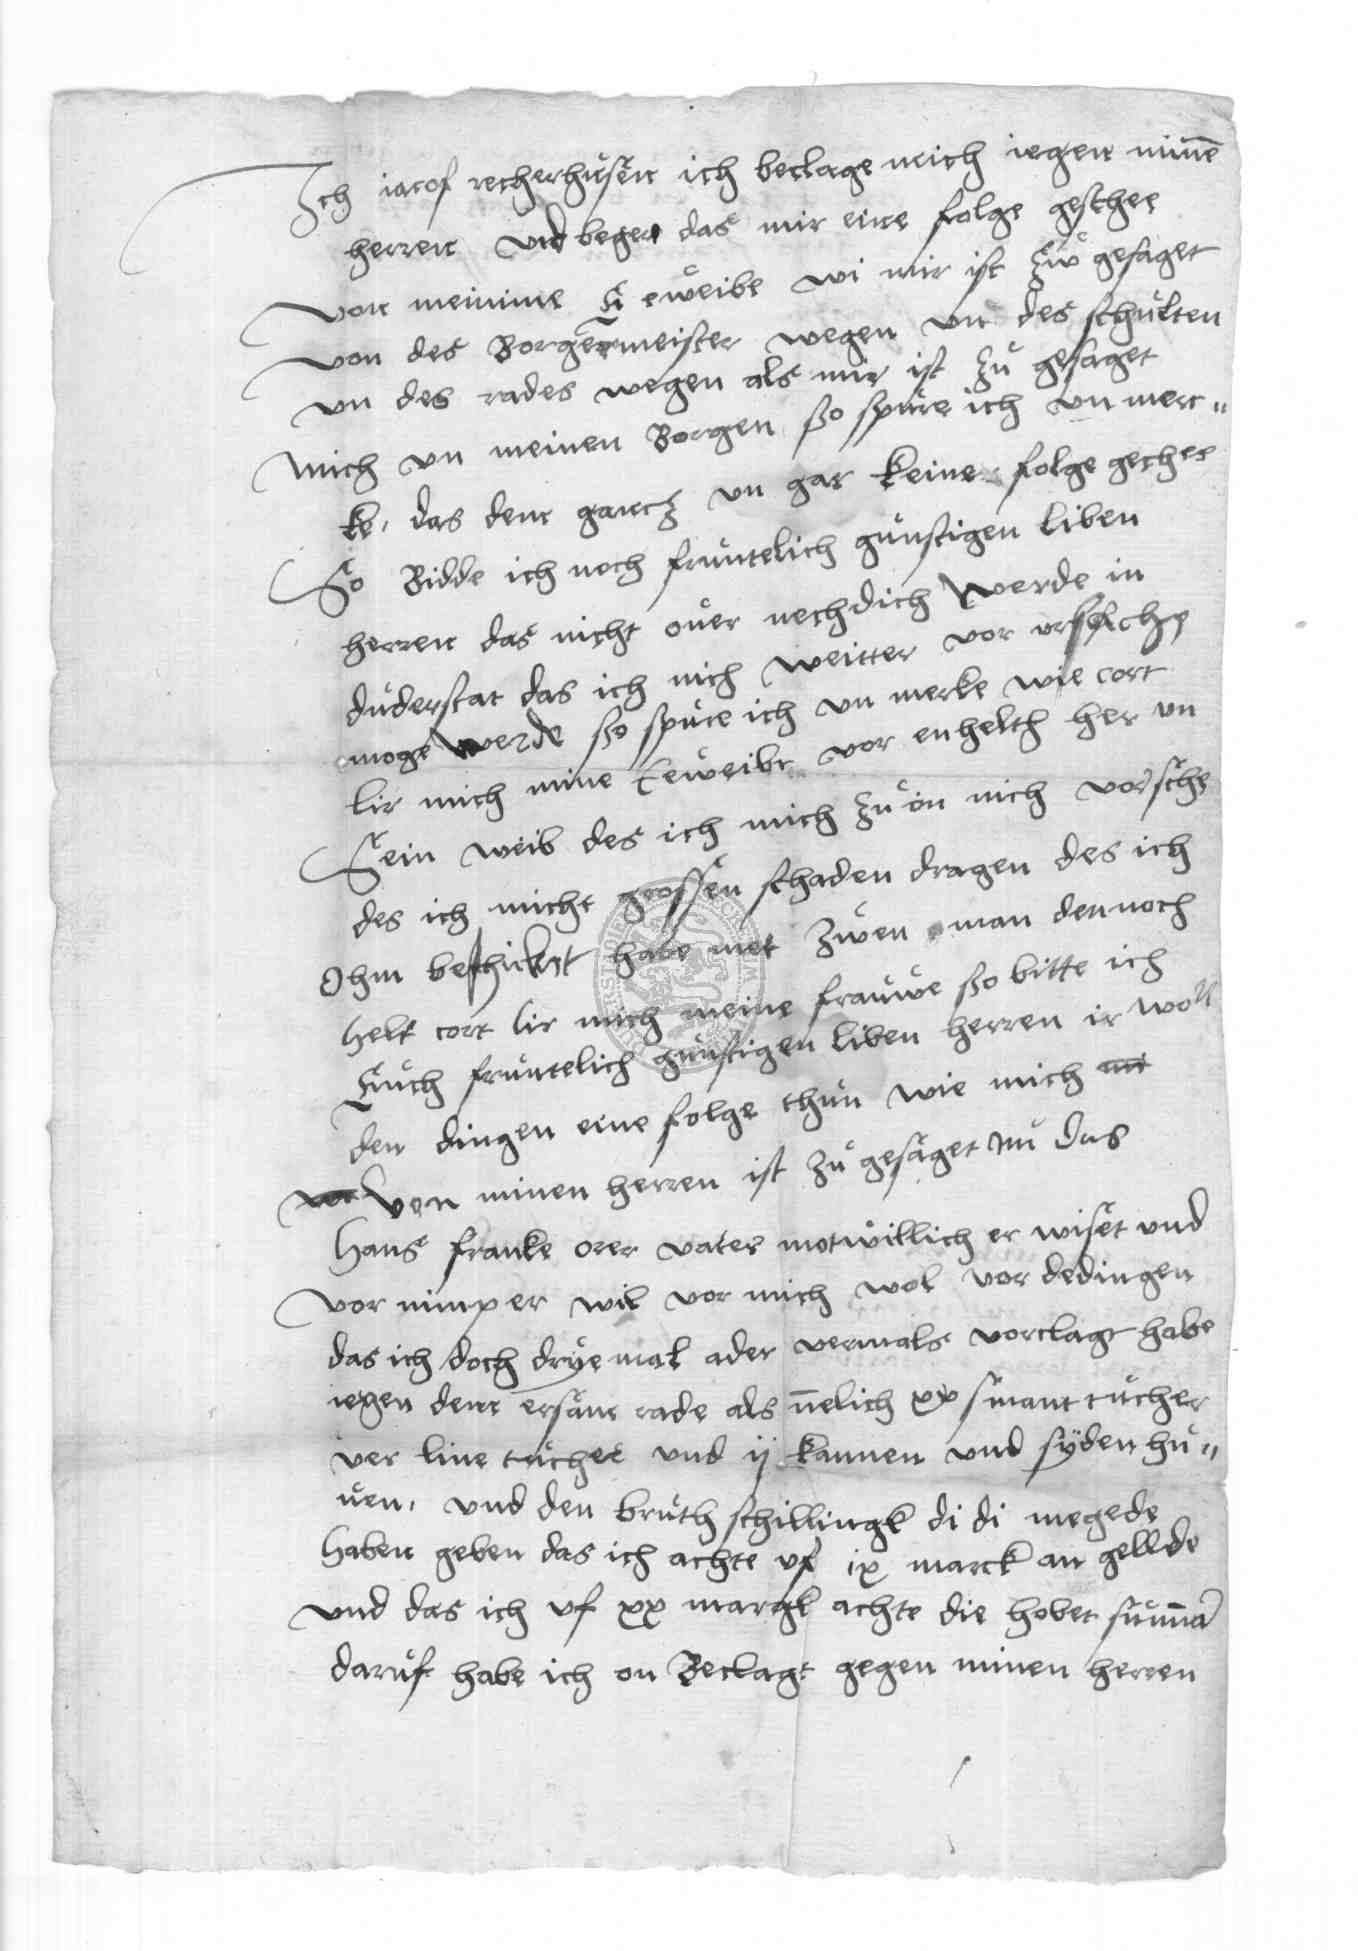 Ich iacof recherhusen ich beclage mich iegen mine
herren und beger das mir eine folge geschee
von meinime Eeweibe wi mir ist zu gesaget
von des Borgermeister wegen un des schulten
un des rades wegen als mir ist zu gesaget
Mich un meinen Borgen sso spure ich un merc„
ke, das dem gancz un gar keine folge geches
So Bidde ich noch fruntelich gunstigen liben
herren das nicht over nechdich werde in
duderstat das ich nich weitter vor ursache
moge werde sso spure ich un merke wie cort
lir mich mine Eeweibe vor enhelth her un
Sein weib des ich mich zu on nich vorsche
des ich nicht grossen schaden dragen des ich
Ohm beschickt habe met zwen man dennoch
helt cort lir mich meine frauwe sso bitte ich
Euch fruntelich gunstigen liben herren ir woll
den dingen eine folge thun wie mich
von minen herren ist zu gesaget nu das
hans franke orer vater motwillich er wiset und
vor nimp er wil vor mich wol vor dedingen
das ich doch drye mal ader vermals vorclagt habe
iegen dem ersam rade als nelich xx smant tucher
ver line tucher und ij kannen und syden hu„
ven, und den bruth schillingk di di megede
haben geben das ich achte uf ix marck an gellde
und das ich uf xx margk achte die hobet summa
daruf habe ich on Beclagt gegen minen herren